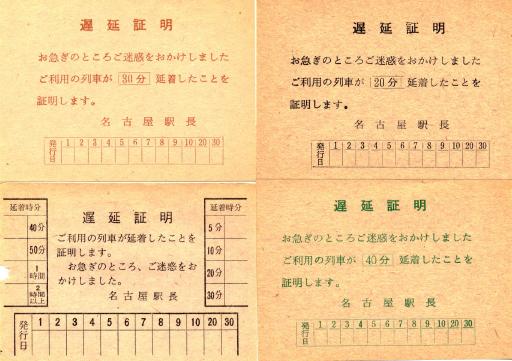 遅延証明
お急ぎのところご迷惑をおかけしました
ご利用の列車が 30分 延着したことを
証明します。
名古屋駅長
発行日 1 2 3 4 5 6 7 8 9 10 20 30
遅延証明
お急ぎのところご迷惑をおかけしました
ご利用の列車が 20分 延着したことを
証明します。
名古屋駅長
発行日 1 2 3 4 5 6 7 8 9 10 20 30
延着時分
40分
50分
1時間
2時間以上
遅延証明
ご利用の列車が延着したことを
証明します。
お急ぎのところ、ご迷惑をお
かけしました。
名古屋駅長
延着時分
5分
10分
20分
30分
発行日 1 2 3 4 5 6 7 8 9 10 20 30
遅延証明
お急ぎのところご迷惑をおかけしました
ご利用の列車が 40分 延着したことを
証明します。
名古屋駅長
発行日 1 2 3 4 5 6 7 8 9 10 20 30